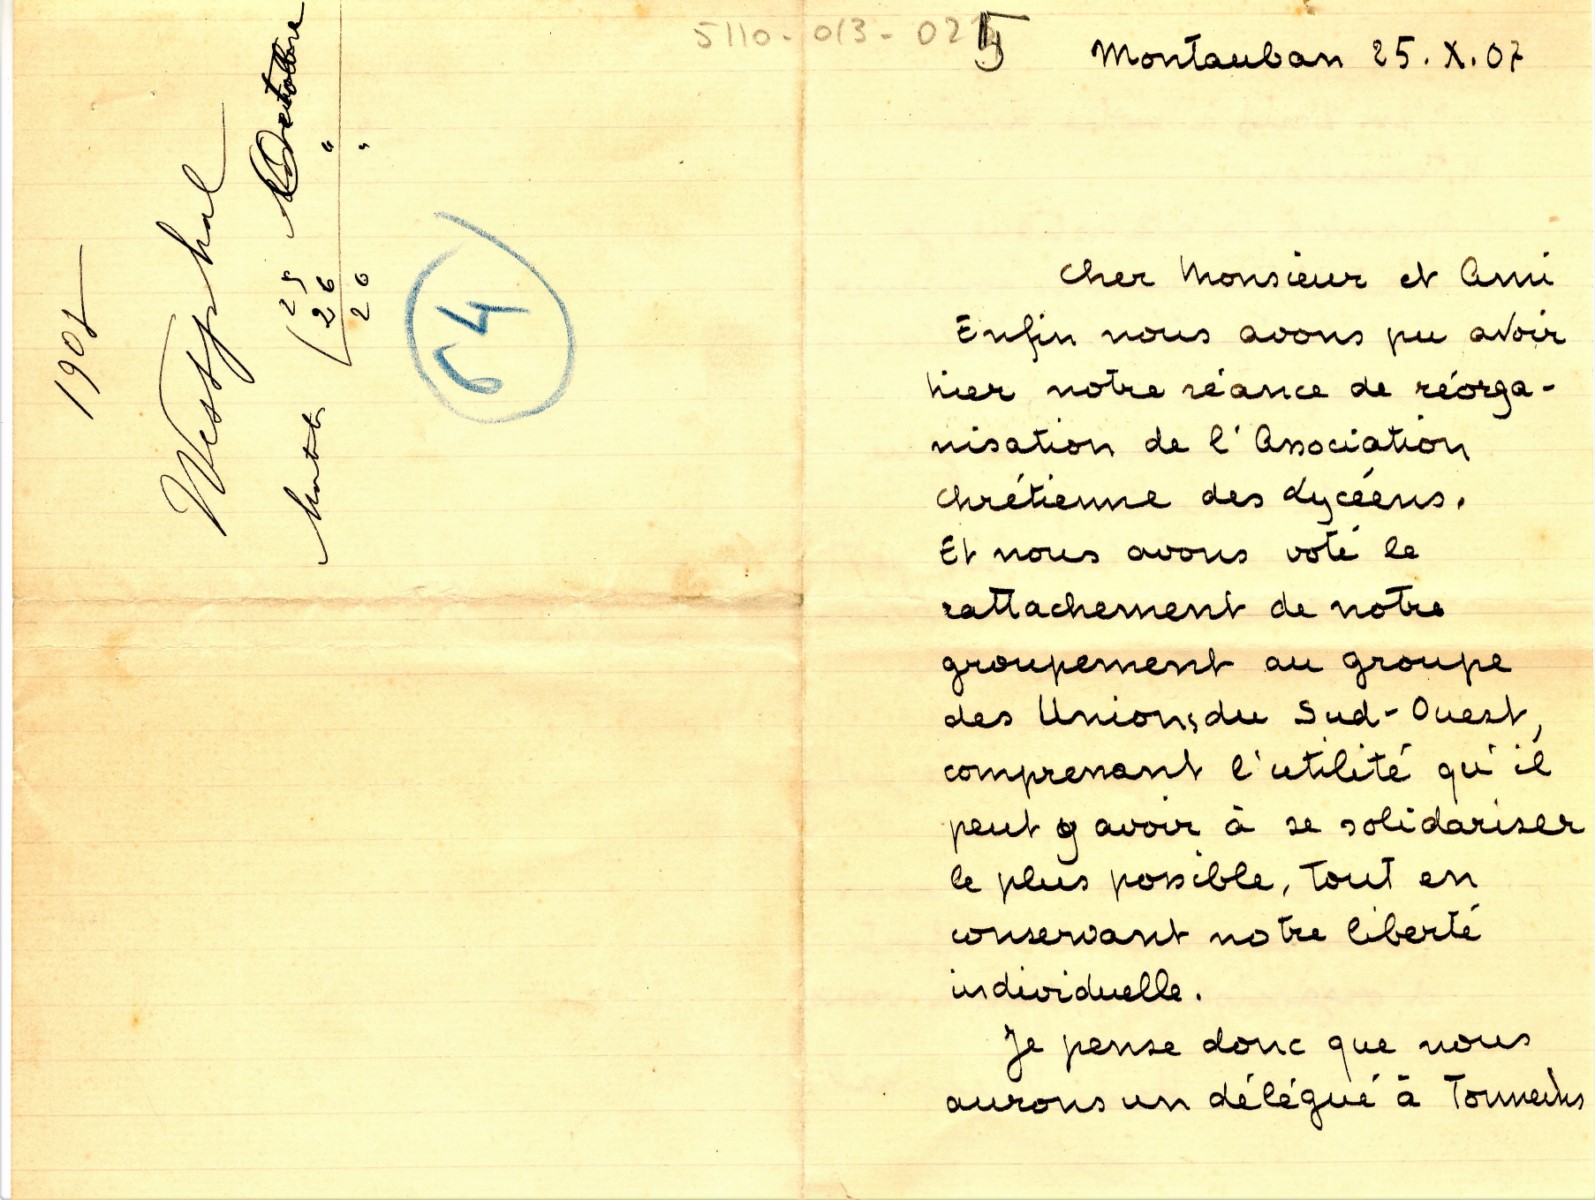 1907
Westphal
25 Octobre
26 "
26 "
54
5110-013-02
5
Montauban 25.X.07
Cher Monsieur et Ami
Enfin nous avons pu avoir
hier notre séance de réorga-
nisation de l'Association
Chrétienne des Lycéens.
Et nous avons voté le
rattachement de notre
groupement au groupe
des Unions du Sud-Ouest,
comprenant l'utilité qu'il
peut y avoir à se solidariser
le plus possible, tout en
conservant notre liberté
individuelle.
Je pense donc que nous
aurons un délégué à Tonneins